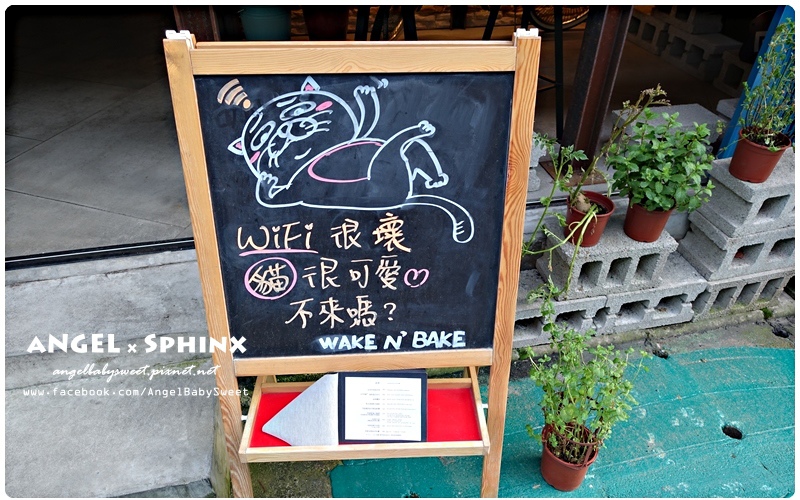 WiFi 很壞
貓 很可愛
不來嗎?
WAKE N' BAKE
ANGEL x SPHINX
angelbabysweet.pixnet.net
www.facebook.com/AngelBabySweet